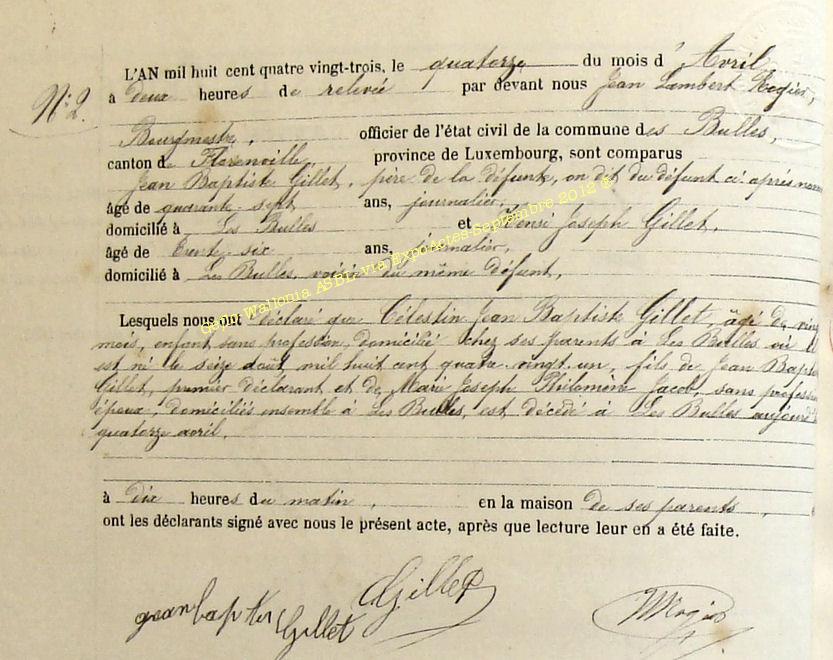 L'AN mil huit cent quatre vingt-trois, le quatorze du mois d' Avril
N° 2. à deux heures de relevée par devant nous Jean Lambert
Bourgmestre, officier de l'état civil de la commune des Bulles,
canton de Florenville, province de Luxembourg, sont comparus
Jean Baptiste Gillet, père de la défunte, on dit du défunt ci après nommé
âgé de quarante sept ans, journalier,
domicilié à Les Bulles et Henri Joseph Gillet,
âgé de trente six ans, journalier,
domicilié à Les Bulles, voisin du même défunt,
Geneal Wallonia ASBL via ExpoActes Septembre 2012 ©
Lesquels nous ont déclaré que Célestin Jean Baptiste Gillet, âgé de vingt
mois, enfant sans profession, domicilié chez ses parents à Les Bulles où il
est né le seize août mil huit cent quatre vingt un, fils de Jean Baptiste
Gillet, premier déclarant et de Marie Joseph Philomène Jacob, sans profession
époux, domiciliés ensemble à Les Bulles, est décédé à Les Bulles aujourd'
quatorze avril.
à dix heures du matin, en la maison de ses parents,
ont les déclarants signé avec nous le présent acte, après que lecture leur en a été faite.
jean baptis Gillet Gillet